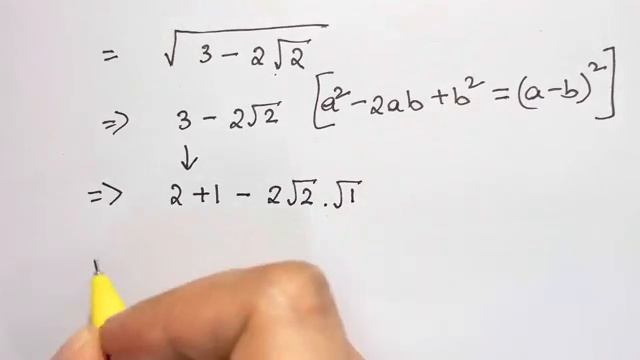 = √(3 - 2√2)
=> 3 - 2√2 [a² - 2ab + b² = (a-b)²]
↓
=> 2 + 1 - 2√2 . √1